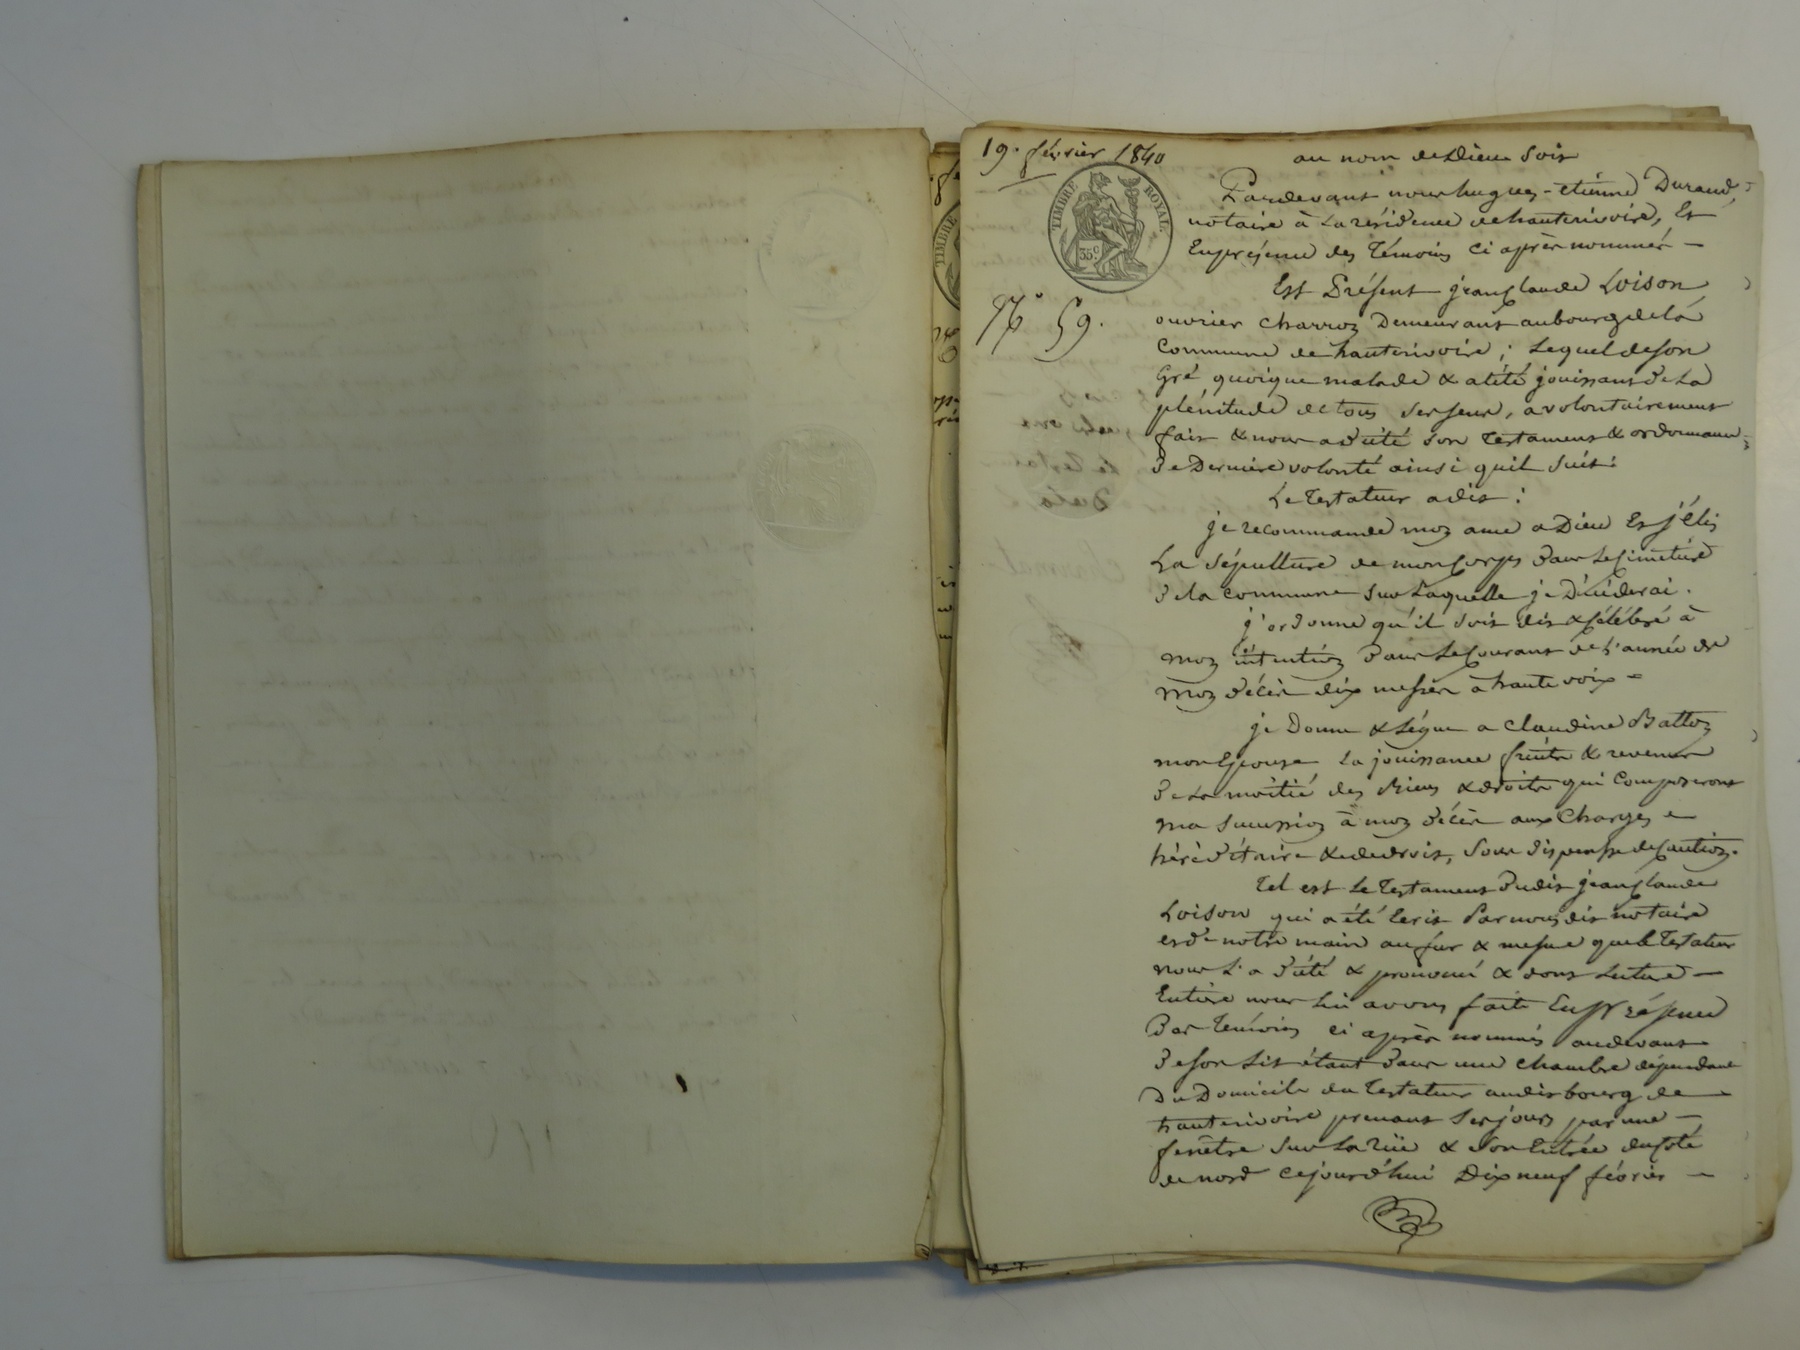 19. février 1840
au nom de Dieu soit
TIMBRE ROYAL
35 C
Pardevant nous hugues-etienne Durand,
notaire à la résidence de hauterivoire, Et
En présence des Témoins ci après nommés —
Est Présent jean Claude Loison
N° 59.
ouvrier charron Demeurant au bourg de la
Commune de hauterivoire ; Lequel de son
Gré quoique malade & alité jouissant de La
plénitude de tous ses sens, a volontairement
fait & nous a dicté son Testament & ordonnance
de Dernière volonté ainsi quil suit :
Le Testateur a dit :
je recommande mon ame a Dieu Et j'élis
La Sépulture de mon Corps dans Le Cimetière
de la commune sur Laquelle je Décéderai .
j'ordonne qu'il soit dit & Célébré à
mon intention dans Le Courant de L'année de
mon décès dix messes à haute voix —
je Donne & Lègue a Claudine Batton
mon Epouse La jouissance fruits & revenus
de La moitié des Biens & droits qui Composeront
ma succession à mon décès aux Charges —
héréditaires & de droit, sous dispense de Caution.
Tel est Le Testament dudit jean Claude
Loison qui a été Ecrit Par nous dit notaire
et de notre main au fur & mesure que le Testateur
nous L'a dicté & prononcé & dont Lecture —
Entière nous Lui avons faite En Présence
Des Témoins ci après nommés au devant
de son Lit étant dans une chambre dépendant
Du Domicile du Testateur audit bourg de
hauterivoire prenant ses jours par une —
fenêtre sur La rue & son Entrée du Coté
de nord Cejourd'hui Dix neuf février —